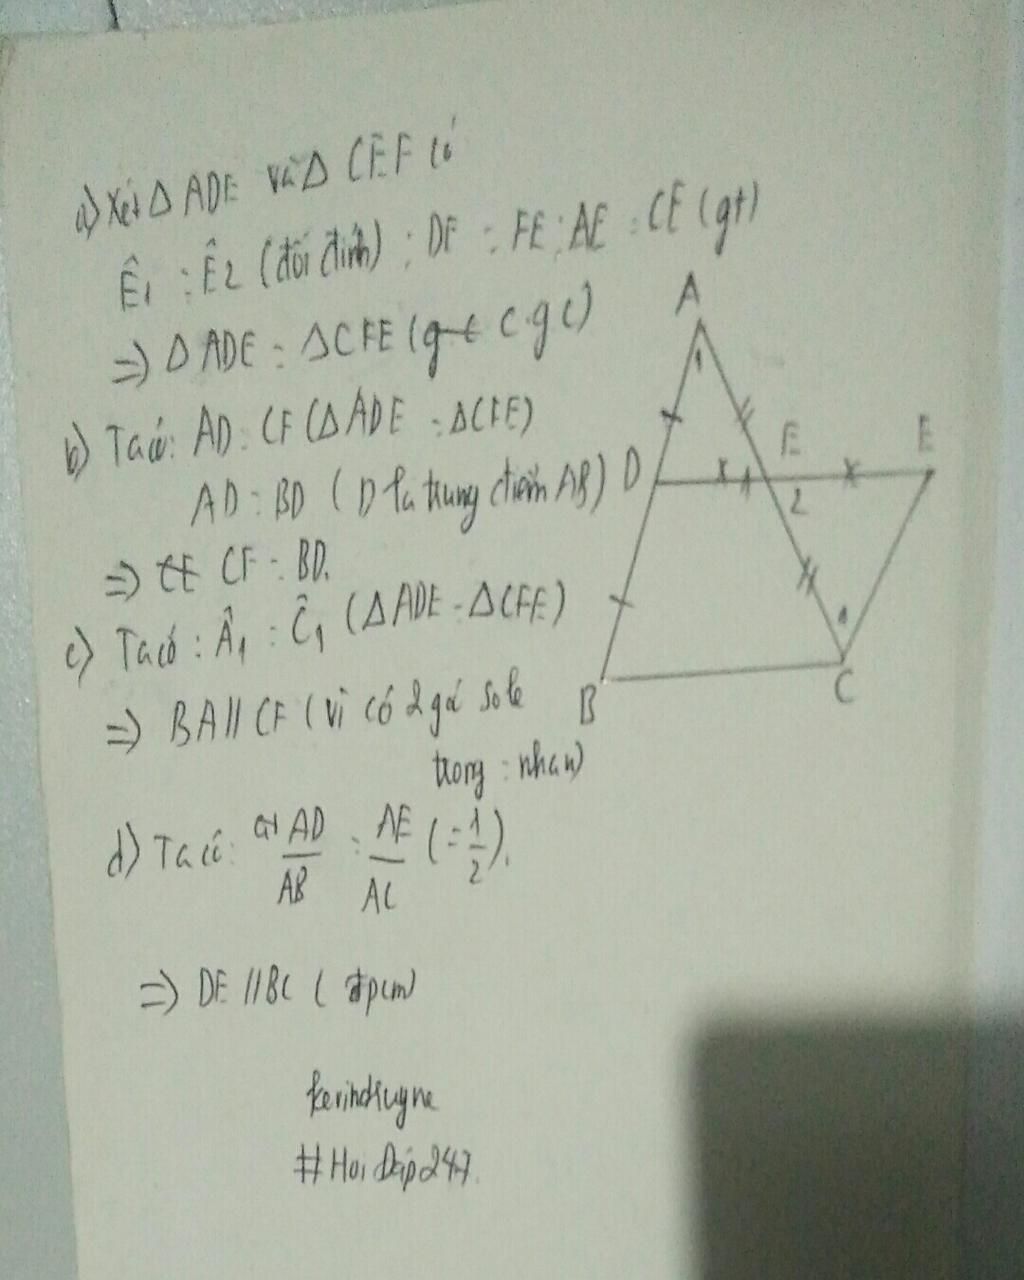 a) Xét Δ ADE và Δ CEF có
Ê1 = Ê2 (đối đỉnh) ; DE = FE ; AE = CE (gt)
=> Δ ADE = ΔCFE ( c.g c)
b) Ta có: AD = CF (Δ ADE = ΔCFE)
AD = BD ( D là trung điểm AB)
=> CF = BD.
c) Ta có : Â1 = Ĉ1 (Δ ADE = ΔCFE)
=> BA // CF ( vì có 2 góc sole
trong = nhau)
d) Ta có: AD/AB = AE/AC (= 1/2).
=> DE // BC ( đpcm)
#Hoi Dap247.
A
1
D
1
E
2
E
1
B
C